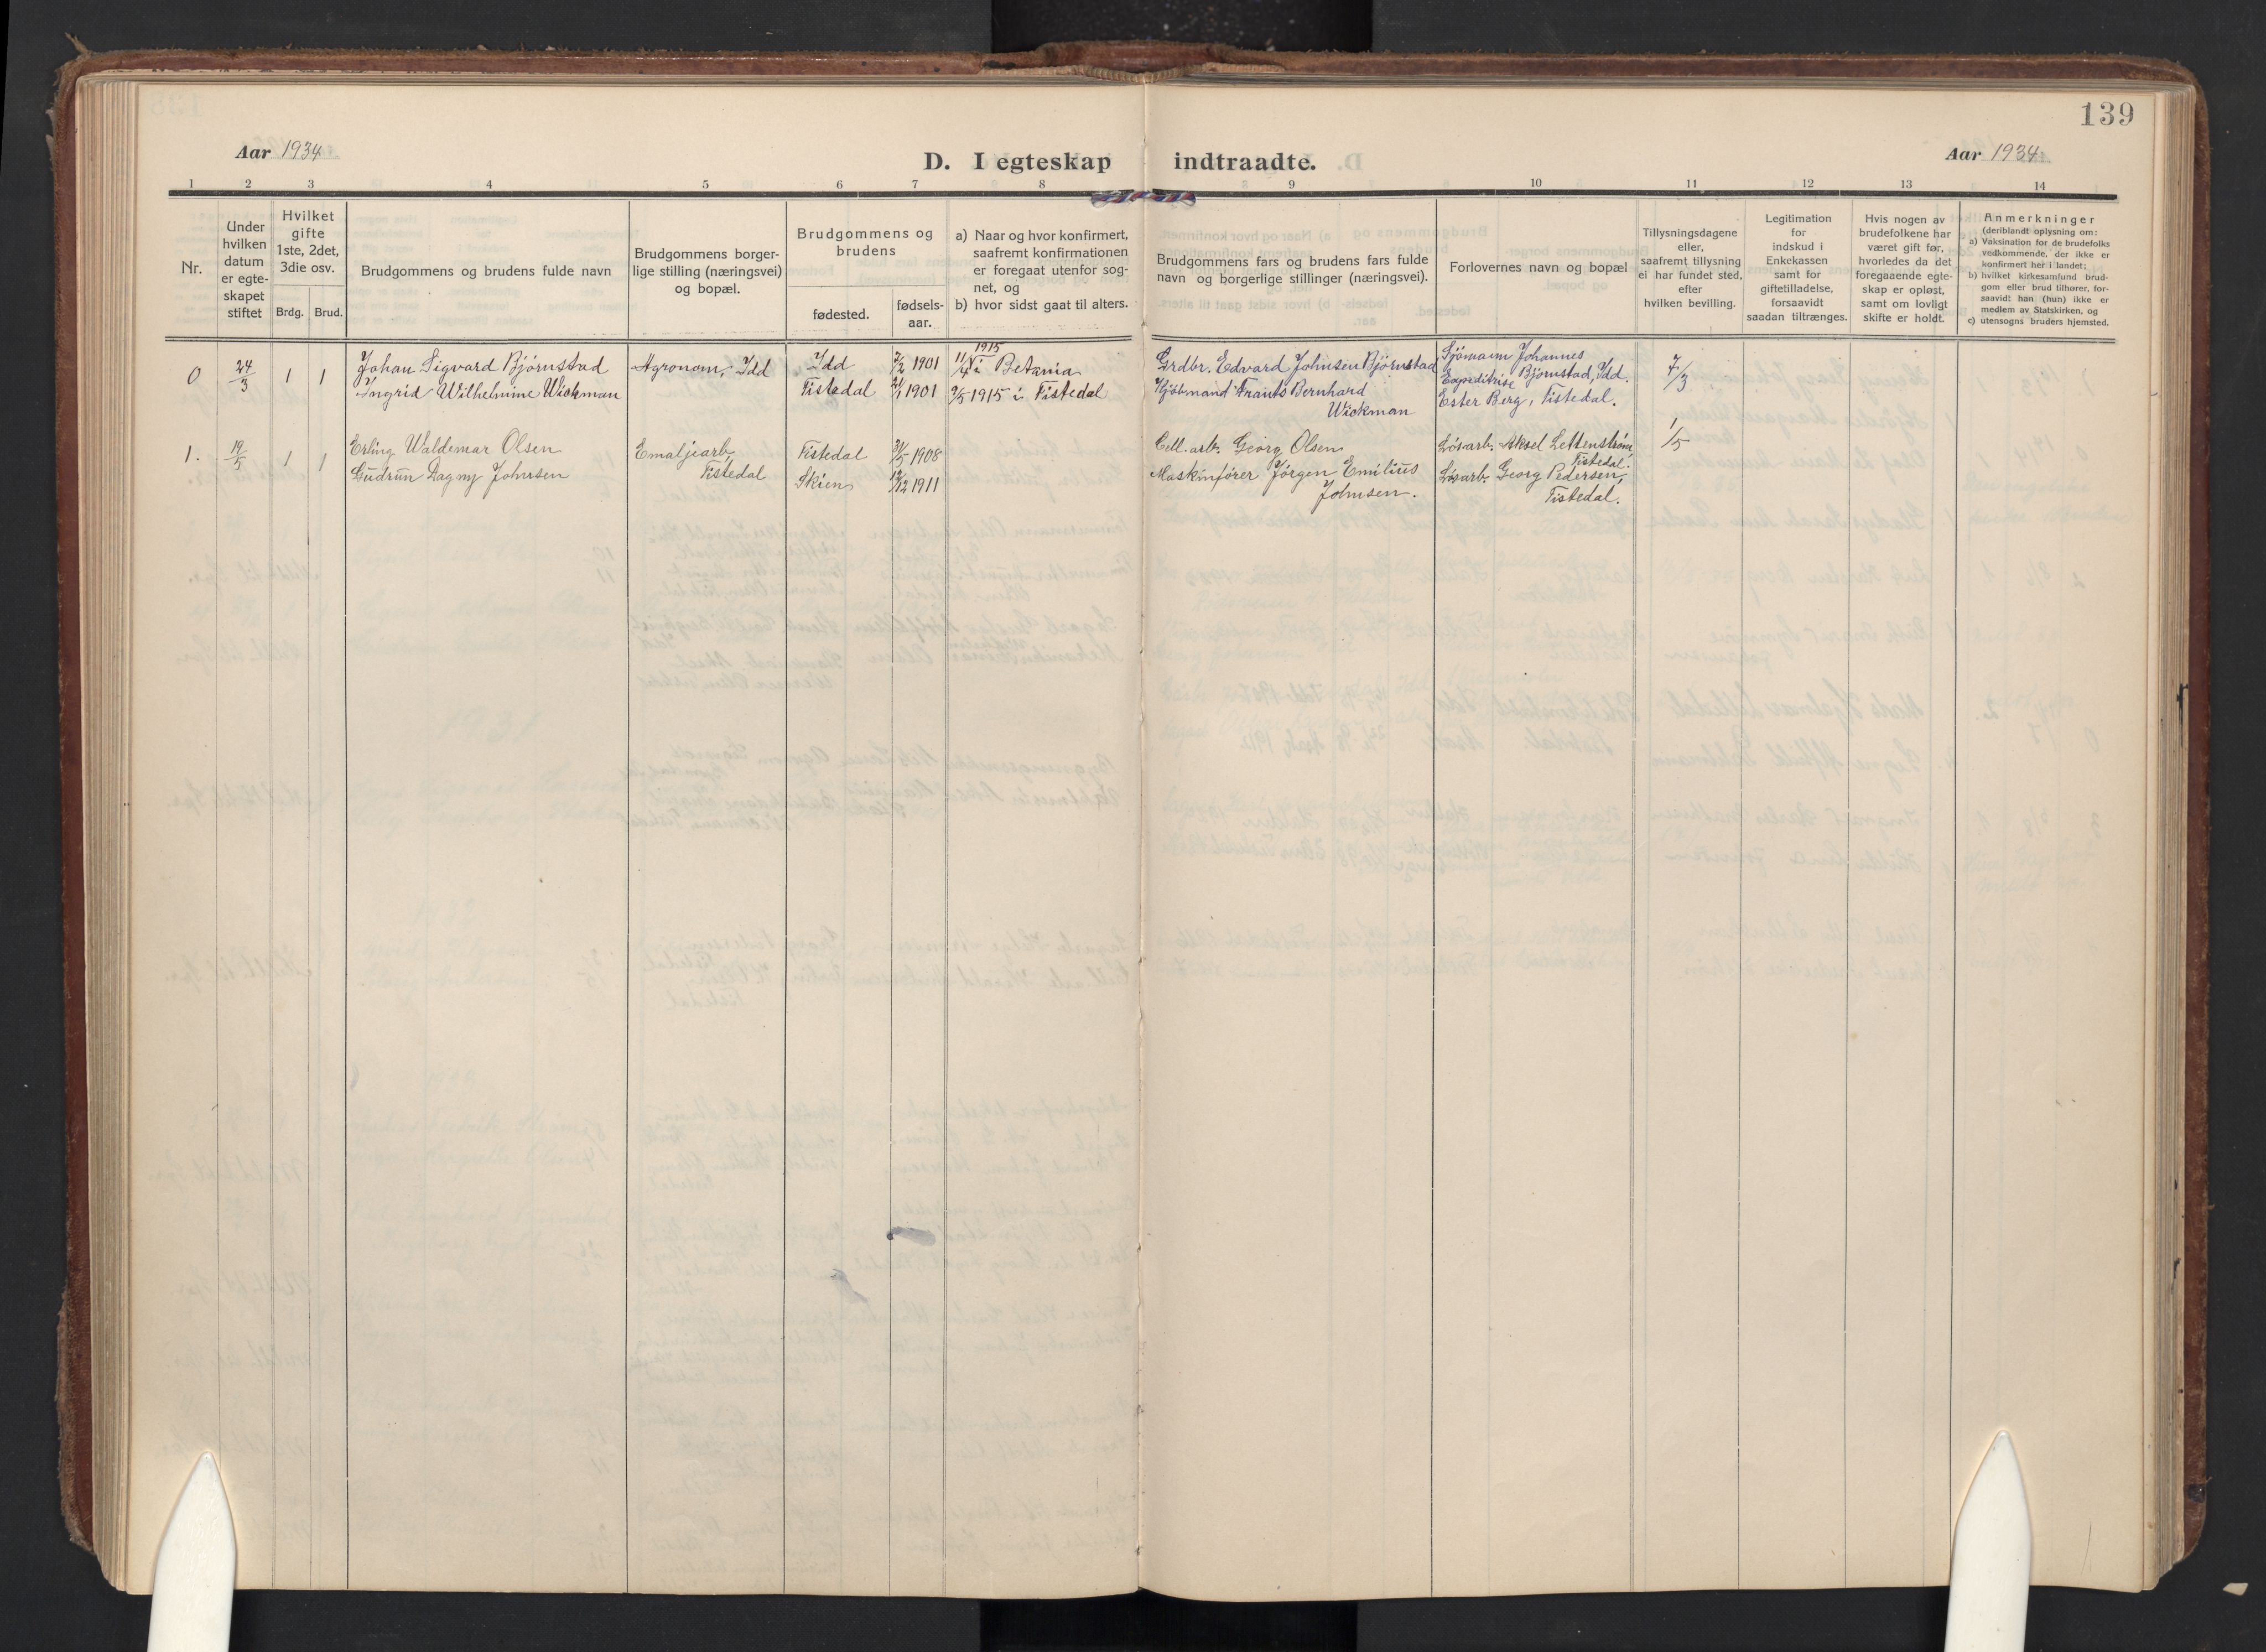 139
Aar 1934
D. I egteskap indtraadte.
Aar 1934
1 2 3 4 5 6 7 8 9 10 11 12 13 14
Nr.
Under
hvilken
datum
er egte-
skapet
stiftet
Hvilket
gifte
1ste, 2det,
3die osv.
Brdg. Brud.
Brudgommens og brudens fulde navn
Brudgommens borger-
lige stilling (næringsvei)
og bopæl.
Brudgommens og
brudens
fødested.
fødsels-
aar.
a) Naar og hvor konfirmert,
saafremt konfirmationen
er foregaat utenfor sog-
net, og
b) hvor sidst gaat til alters.
Brudgommens fars og brudens fars fulde
navn og borgerlige stillinger (næringsvei).
Forlovernes navn og bopæl
Tillysningsdagene
eller,
saafremt tillysning
ei har fundet sted,
efter
hvilken bevilling.
Legitimation
for
indskud i
Enkekassen
samt for
giftetilladelse,
forsaavidt
saadan tiltrænges.
Hvis nogen av
brudefolkene har
været gift før,
hvorledes da det
foregaaende egte-
skap er opløst,
samt om lovligt
skifte er holdt.
Anmerkninger
(deriblandt oplysning om:
a) Vaksination for de brudefolks
vedkommende, der ikke er
konfirmert her i landet;
b) hvilket kirkesamfund brud-
gom eller brud tilhører, for-
saavidt han (hun) ikke er
medlem av Statskirken, og
c) utensogns bruders hjemsted.
0 24/3 1 1
Johan Sigvard Bjørnstad
Ingrid Wilhelmine Wickman
Agronom, Idd
Idd
Tistedal
7/2 1901
1901
1915
i Betania
1915 i Tistedal
Grdbr. Edvard Johnsen Bjørnstad
Kjøbmand Frants Bernhard
Wickman
Sjømann Johannes
Bjørnstad, Idd.
Expeditrise
Ester Berg, Tistedal.
7/3
1. 19/5 1 1
Erling Waldemar Olsen
Gudrun Dagny Johnsen
Emaljearb.
Tistedal
Tistedal
Skien
31/5 1908
12/12 1911
Cell. arb. Georg Olsen
Maskinfører Jørgen Emilius
Johnsen.
Løsarb. Aksel Lettenstrøm,
Tistedal.
Løsarb. Georg Pedersen,
Tistedal.
1/5